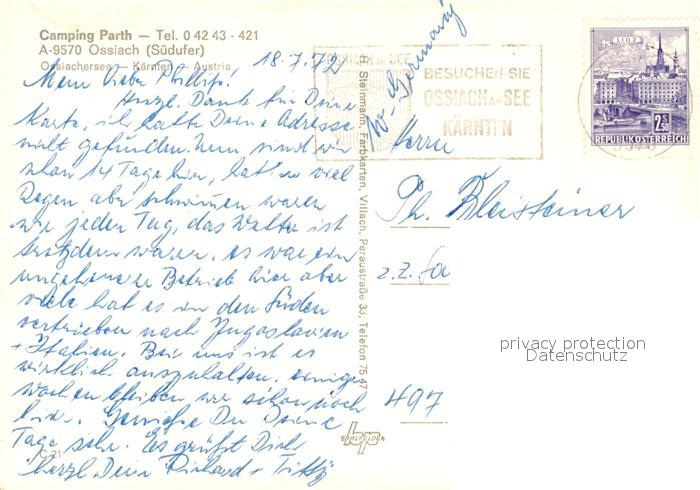 Camping Parth — Tel. 0 42 43 - 421
A-9570 Ossiach (Südufer)
Ossiachersee — Kärnten — Austria
18.7.72
Mein lieber Phillip!
Herzl. Dank für Deine
Karte, ich hatte Deine Adresse
nicht gefunden. Nun sind wir
schon 14 Tage hier, hatten viel
Regen aber schwimmen waren
wir jeden Tag, das Wasser ist
trotzdem warm. es war ein
ungeheurer Betrieb hier aber
viele hat es in den Süden
vertrieben nach Jugoslavien
+ Italien. Bei uns ist es
wirklich auszuhalten. einige
Wochen bleiben wir schon noch
hier. Genieße Du Deine
Tage sehr. Es grüßt Dich
herzl Dein Richard +
C 21
H. Steinmann, Farbkarten, Villach, Peraustraße 33, Telefon 75 47
OSSIACH AM SEE
BESUCHEN SIE
OSSIACH AM SEE
KÄRNTEN
W-Germany
LINZ
2.50
REPUBLIK ÖSTERREICH
Herrn
Ph. Kleisteiner
z. Z. Fa
497
privacy protection
Datenschutz